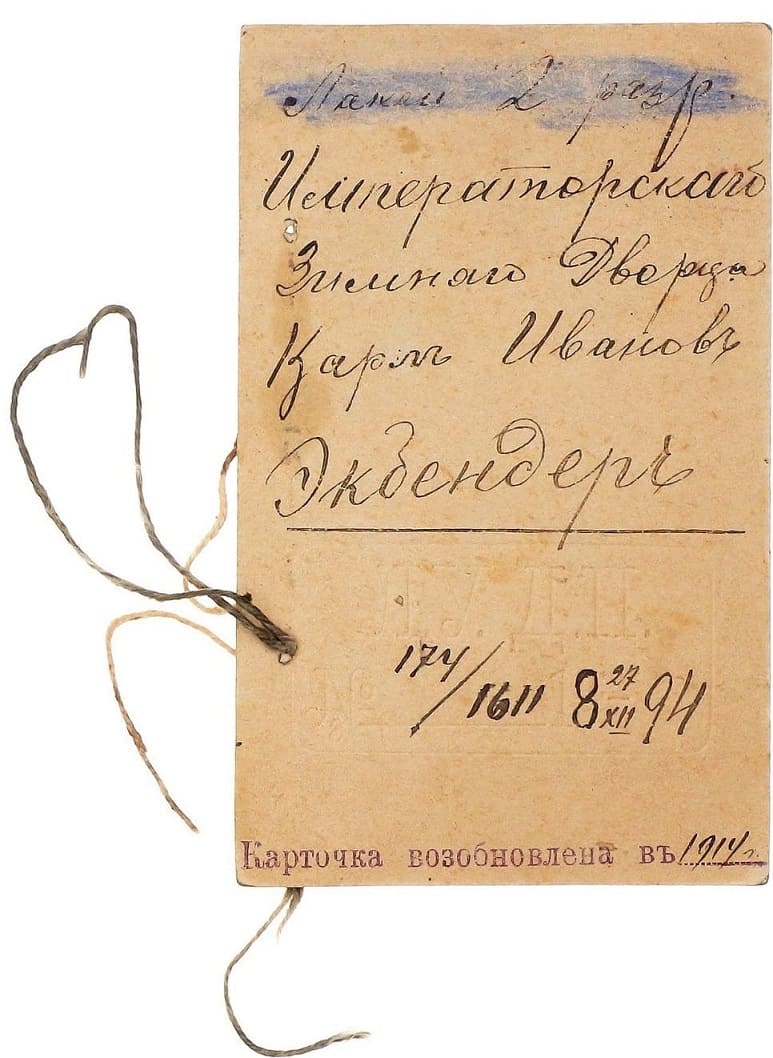 Лакей 2 разр.
Императорскаго
Зимняго Дворца
Карлъ Ивановъ
Экбендеръ
174/1611 8 27/XII 94
Карточка возобновлена въ 1914 г.